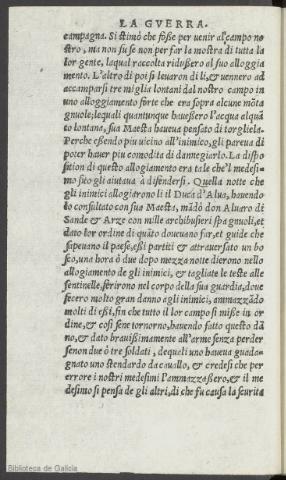 LA GVERRA.
campagna. Si stimò che fosse per uenir al campo no
stro, ma non fu se non per far la mostra di tutta la
lor gente, laqual raccolta ridussero al suo alloggia
mento. L'altro dì poi si leuaron di lì, & uennero ad
accamparsi tre miglia lontani dal nostro campo in
uno alloggiamento forte che era sopra alcune mõta
gnuole; lequali quantunque hauessero l'acqua alquã
to lontana, sua Maestà haueua pensato di torgliela.
Perche essendo piu uicino all'inimico, gli pareua di
poter hauer piu comodità di dannegiarlo. La dispo
sition di questo alloggiamento era tale che'l medesi-
mo sito gli aiutaua à difendersi. Quella notte che
gli inimici allogiarono lì il Duca d'Alua, hauendo
lo consultato con sua Maestà, mãdò don Aluaro di
Sande & Arze con mille archibusieri spagnuoli, et
dato lor ordine di quãto doueuano far, et guide che
sapeuano il paese, essi partiti & attrauersato un bo
sco, una hora ò due dopo mezza notte dierono nello
allogiamento de gli inimici, & tagliate le teste alle
sentinelle, ferirono nel corpo della sua guardia, doue
fecero molto gran danno agli inimici, ammazzãdo
molti di essi, fin che tutto il lor campo si misse in or
dine, & così sene tornorno, hauendo fatto questo dã
no, & dato brauissimamente all'arme senza perder
se non due ò tre soldati, de quali uno haueua guada-
gnato uno stendardo da cauallo, & credesi che per
errore i nostri medesimi l'ammazzassero, & il me
desimo si pensa de gli altri, di che fu causa la scurità
Biblioteca de Galicia